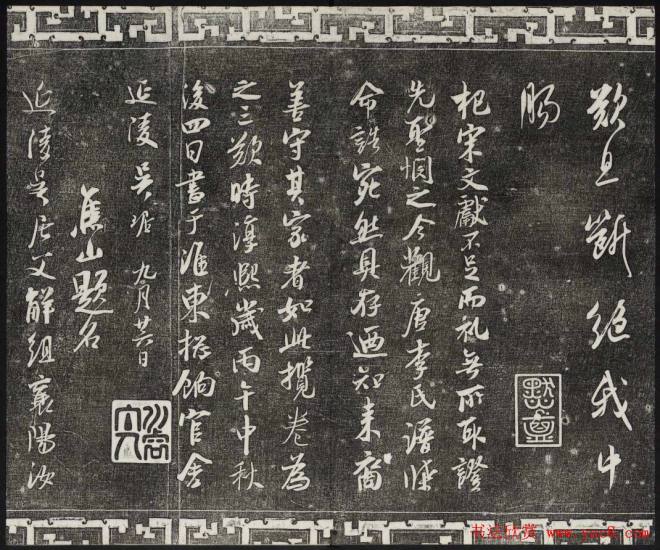 歎息斷絕我中
腸
杞宋文獻不足而礼無所取證
先聖憫之今觀唐李氏譜牒
命誥宛然具存迺知来裔
善守其家者如此攬卷為
之三歎時淳熙歲丙午中秋
後四日書于淮東捴餉官舍
延陵吳琚 九月廿六日
焦山題名
延陵吳居父解組襄陽汝
书法欣赏 www.yac8.com